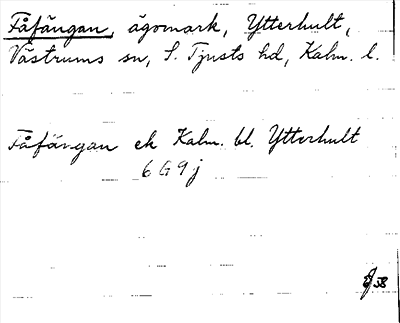 Fåfängan, ägomark, Ytterhult,
Västrums sn, S. Tjusts hd, Kalm. l.
Fåfängan ek Kalm. bl. Ytterhult
6 G 9 j
58